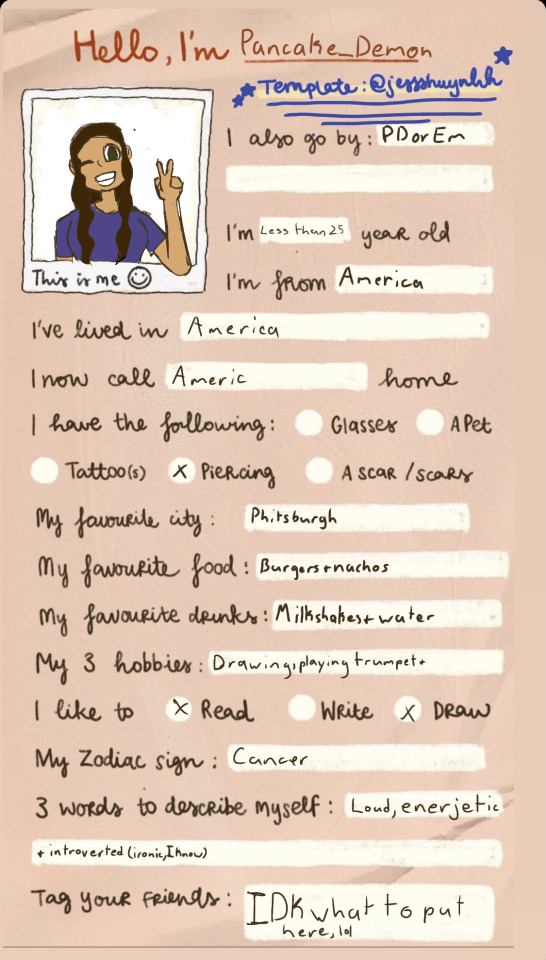 Hello, I'm Pancake_Demon
Template: @jessshuynhh
I also go by: PD or Em
I'm Less than 25 year old
This is me
I'm from America
I've lived in America
I now call Americ home
I have the following: Glasses A Pet
Tattoo(s) x Piercing A scar / scars
My favourite city: Phitsburgh
My favourite food: Burgers + nachos
My favourite drinks: Milkshakes + water
My 3 hobbies: Drawing, playing trumpet +
I like to x Read Write x Draw
My Zodiac sign: Cancer
3 words to describe myself: Loud, enerjetic
+ introverted (ironic, I know)
Tag your friends: IDK what to put
here, lol